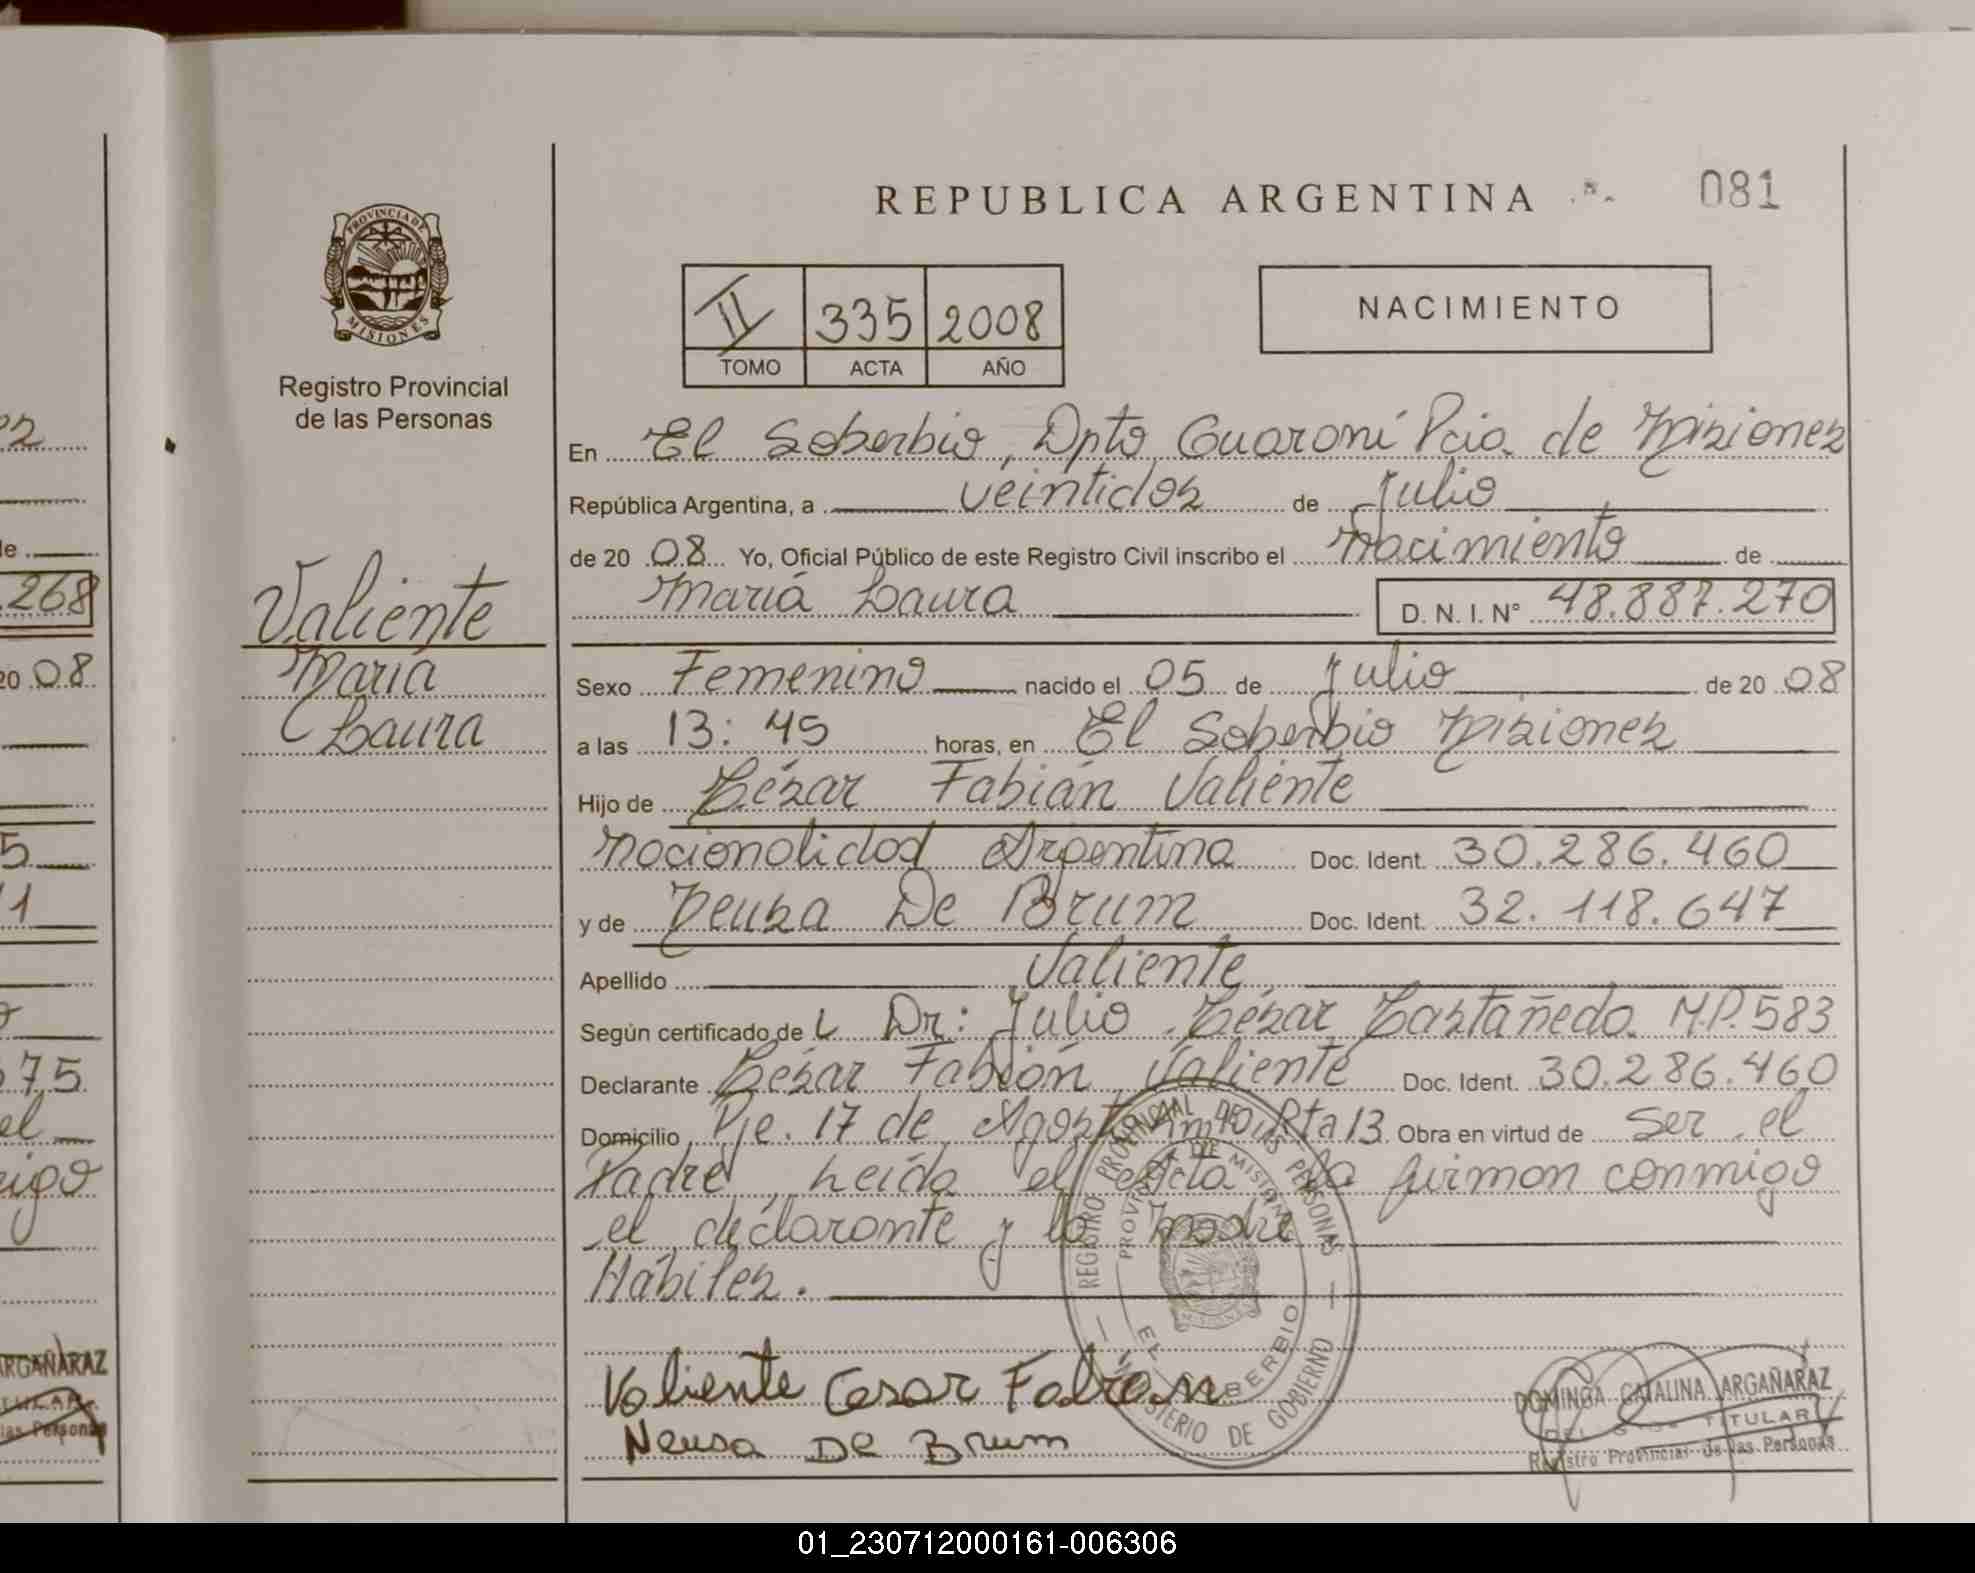 REPUBLICA ARGENTINA
081
PROVINCIA DE MISIONES
Registro Provincial
de las Personas
II 335 2008
TOMO ACTA AÑO
NACIMIENTO
En El Soberbio, Dpto Guaraní Pcia. de Misiones
República Argentina, a veintidos de Julio
de 20 08 Yo, Oficial Público de este Registro Civil inscribo el Nacimiento de
María Laura D. N. I. N° 48.887.270
Valiente
María
Laura
Sexo Femenino nacido el 05 de Julio de 20 08
a las 13:45 horas, en El Soberbio Misiones
Hijo de César Fabián Valiente
Nacionalidad Argentina Doc. Ident. 30.286.460
y de Neusa De Brum Doc. Ident. 32.118.647
Apellido Valiente
Según certificado de L Dr: Julio César Castañeda M.P. 583
Declarante César Fabián Valiente Doc. Ident. 30.286.460
Domicilio Pje. 17 de Agosto Rta 13 Obra en virtud de ser el
Padre, Leída el Acta la firman conmigo
el declarante y la madre
Hábiles.
Valiente Cesar Fabian
Neusa De Brum
REGISTRO PROVINCIAL DE LAS PERSONAS
PROVINCIA DE MISIONES
EL SOBERBIO
MINISTERIO DE GOBIERNO
DOMINGA CATALINA ARGAÑARAZ
TITULAR
Registro Provincial de las Personas
22
de
.268
20 08
5
1
75
el
migo
ARGAÑARAZ
las Personas
01_230712000161-006306